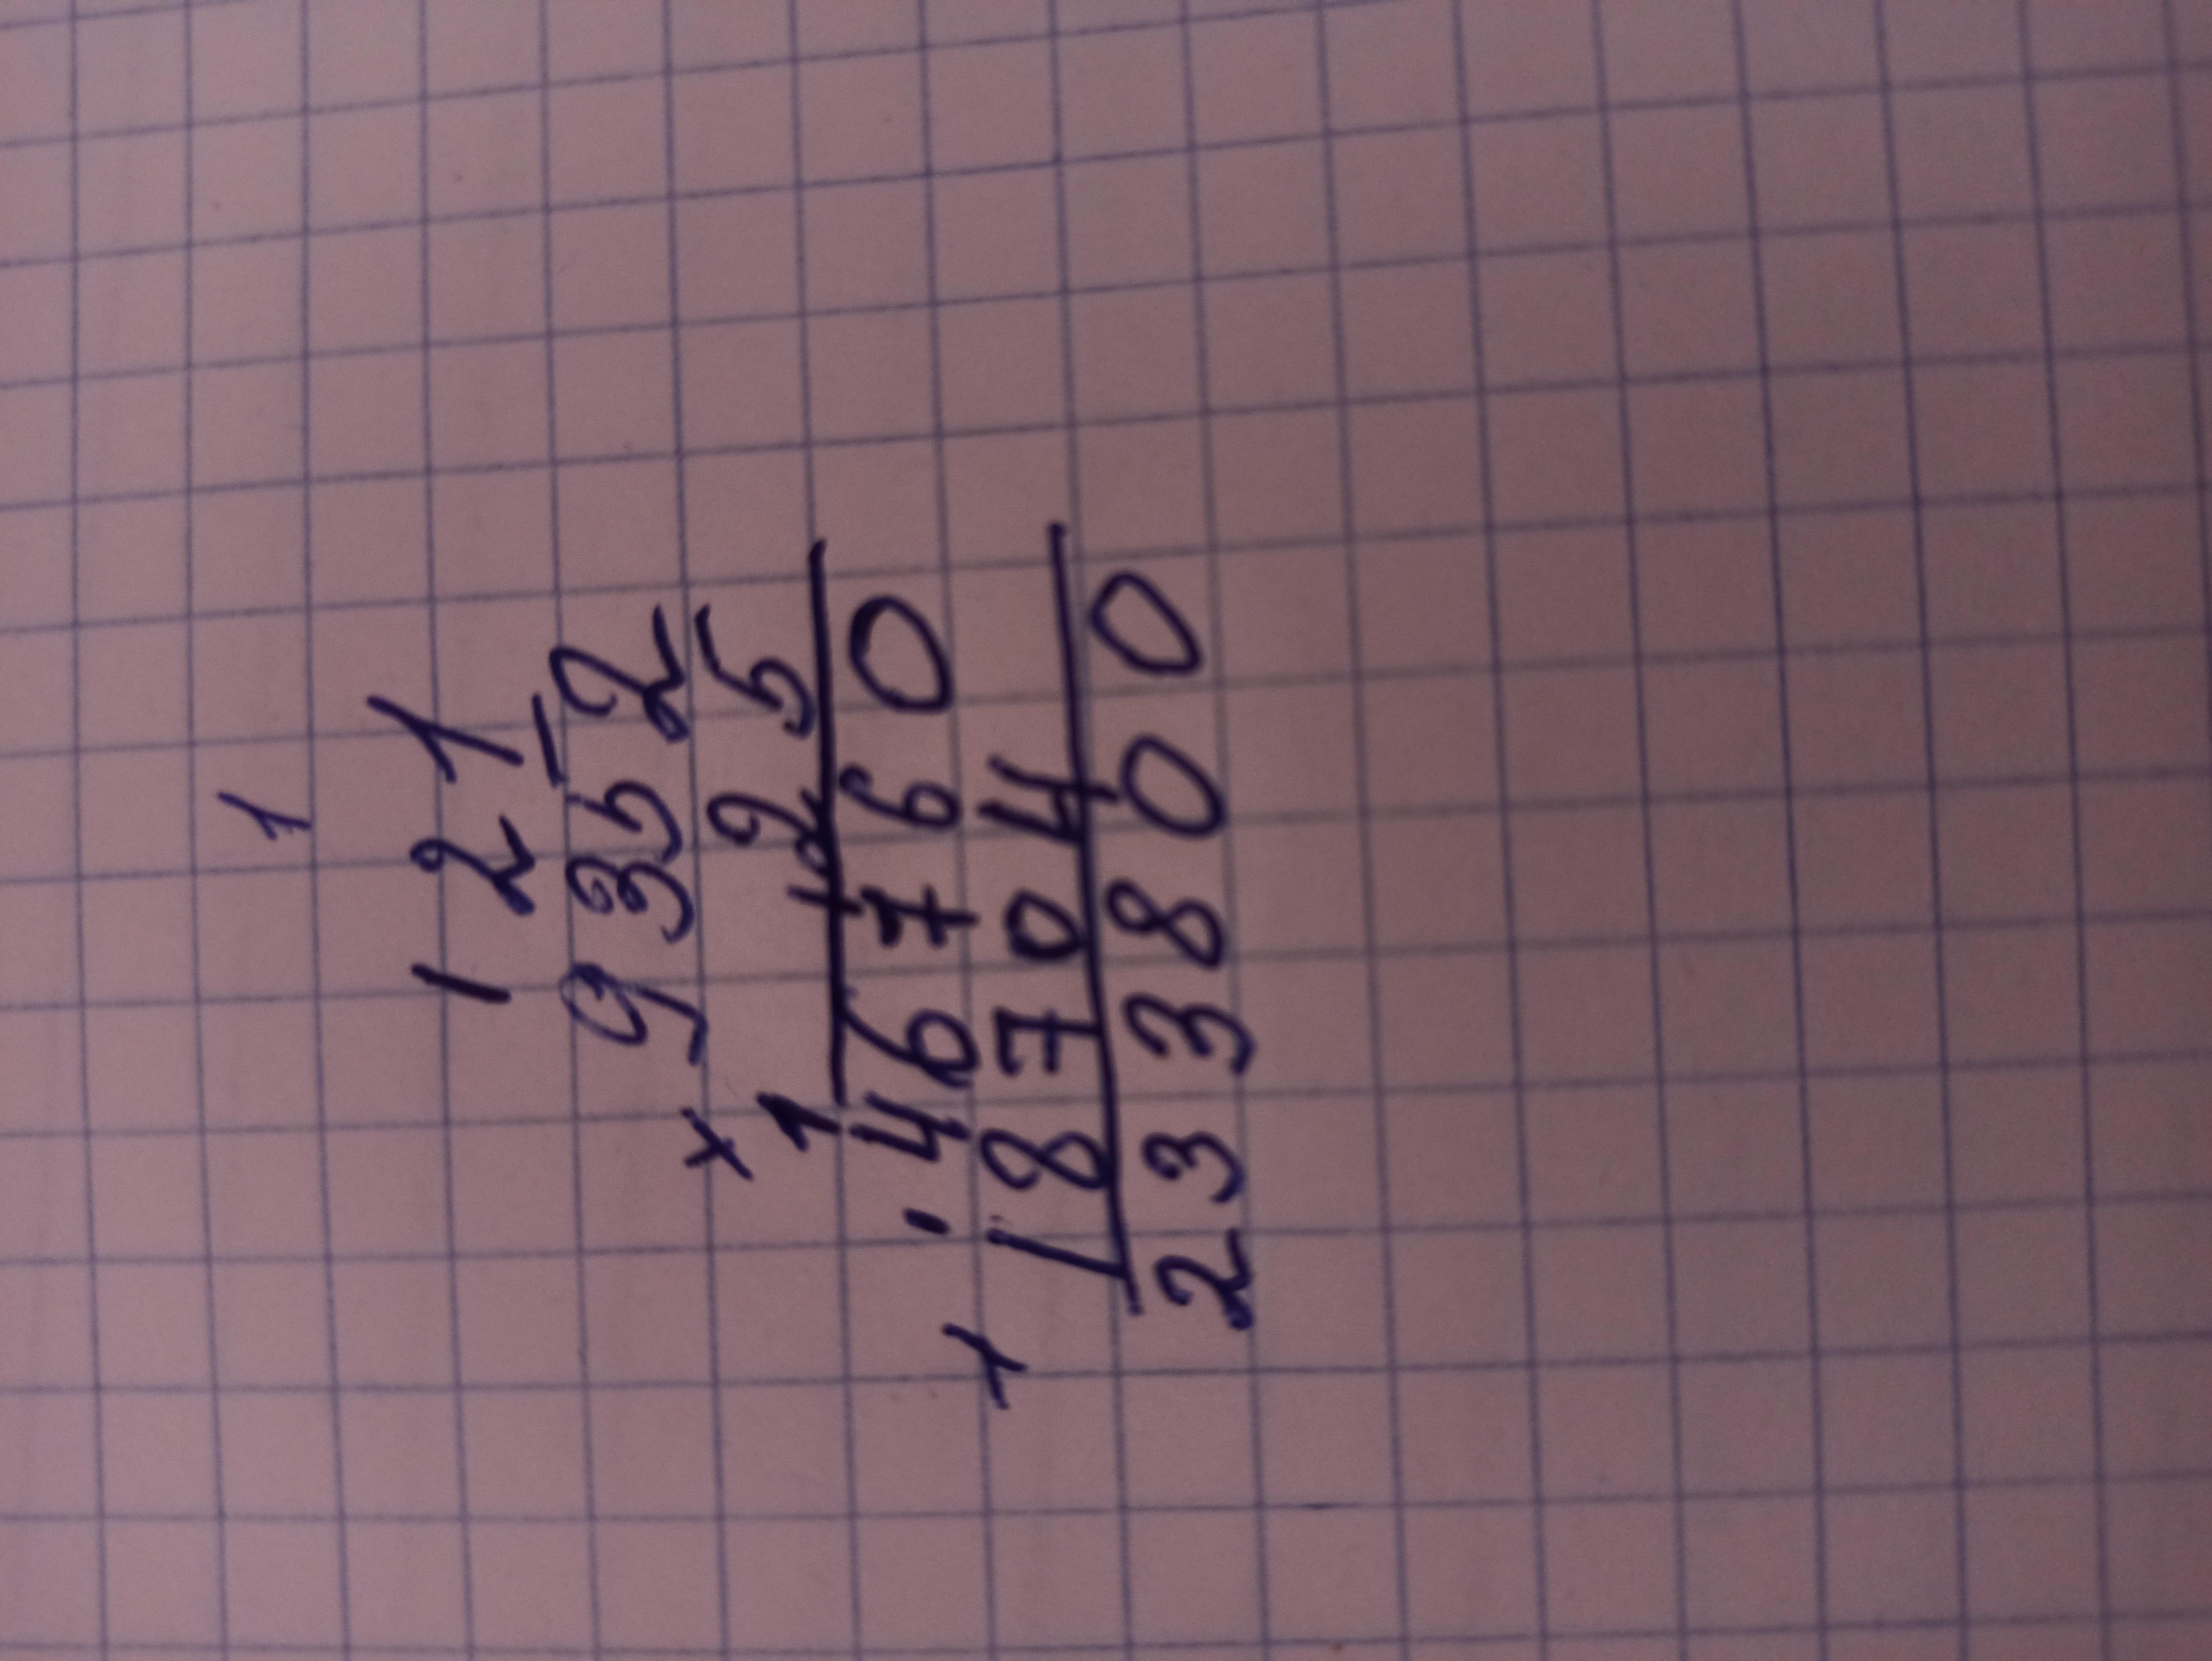 1
1 2 1
9352
× 25
1 1 2
46760
+ 18704
233800